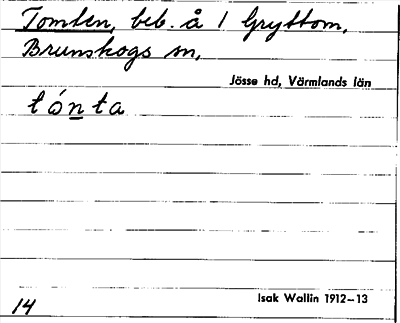 Tomten, beb. å 1 Gryttom,
Brunskogs sn,
Jösse hd, Värmlands län
tónta
Isak Wallin 1912–13
14